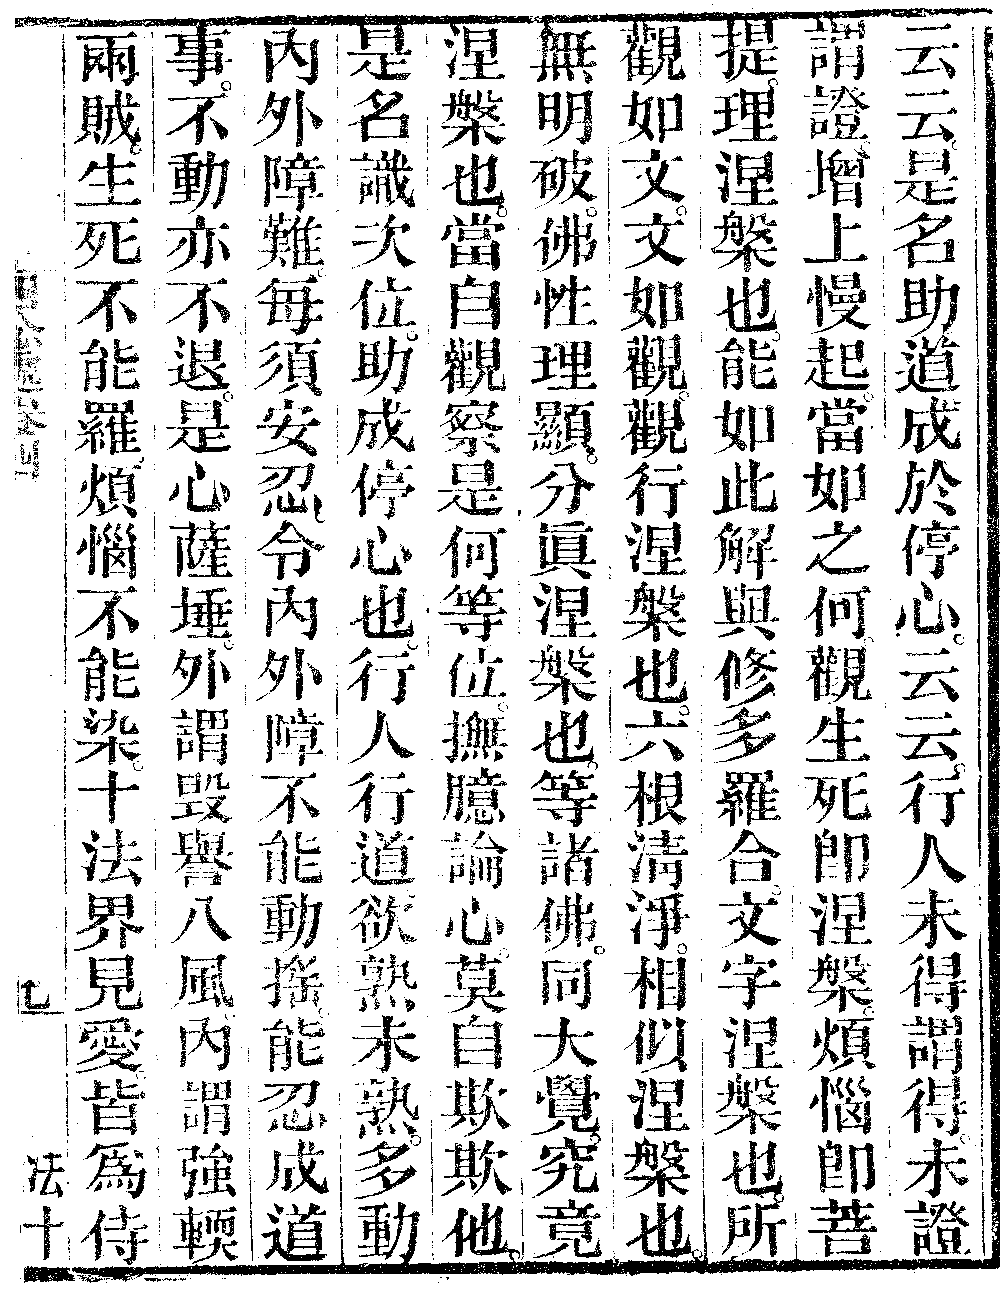 云云。是名助道成於停心。云云。行人未得謂得。未證
謂證。增上慢起。當如之何。觀生死卽涅槃。煩惱卽菩
提。理涅槃也。能如此解與修多羅合。文字涅槃也。所
觀如文。文如觀。觀行涅槃也。六根淸淨。相似涅槃也。
無明破。佛性理顯。分眞涅槃也。等諸佛。同大覺。究竟
涅槃也。當自觀察是何等位。撫臆論心。莫自欺欺他。
是名識次位。助成停心也。行人行道欲熟未熟。多動
內外障難。每須安忍。令內外障不能動搖。能忍成道
事。不動亦不退。是心薩埵。外謂毀譽八風。內謂強輭
兩賊。生死不能羅。煩惱不能染。十法界見愛。皆爲侍
卷四
七
法十